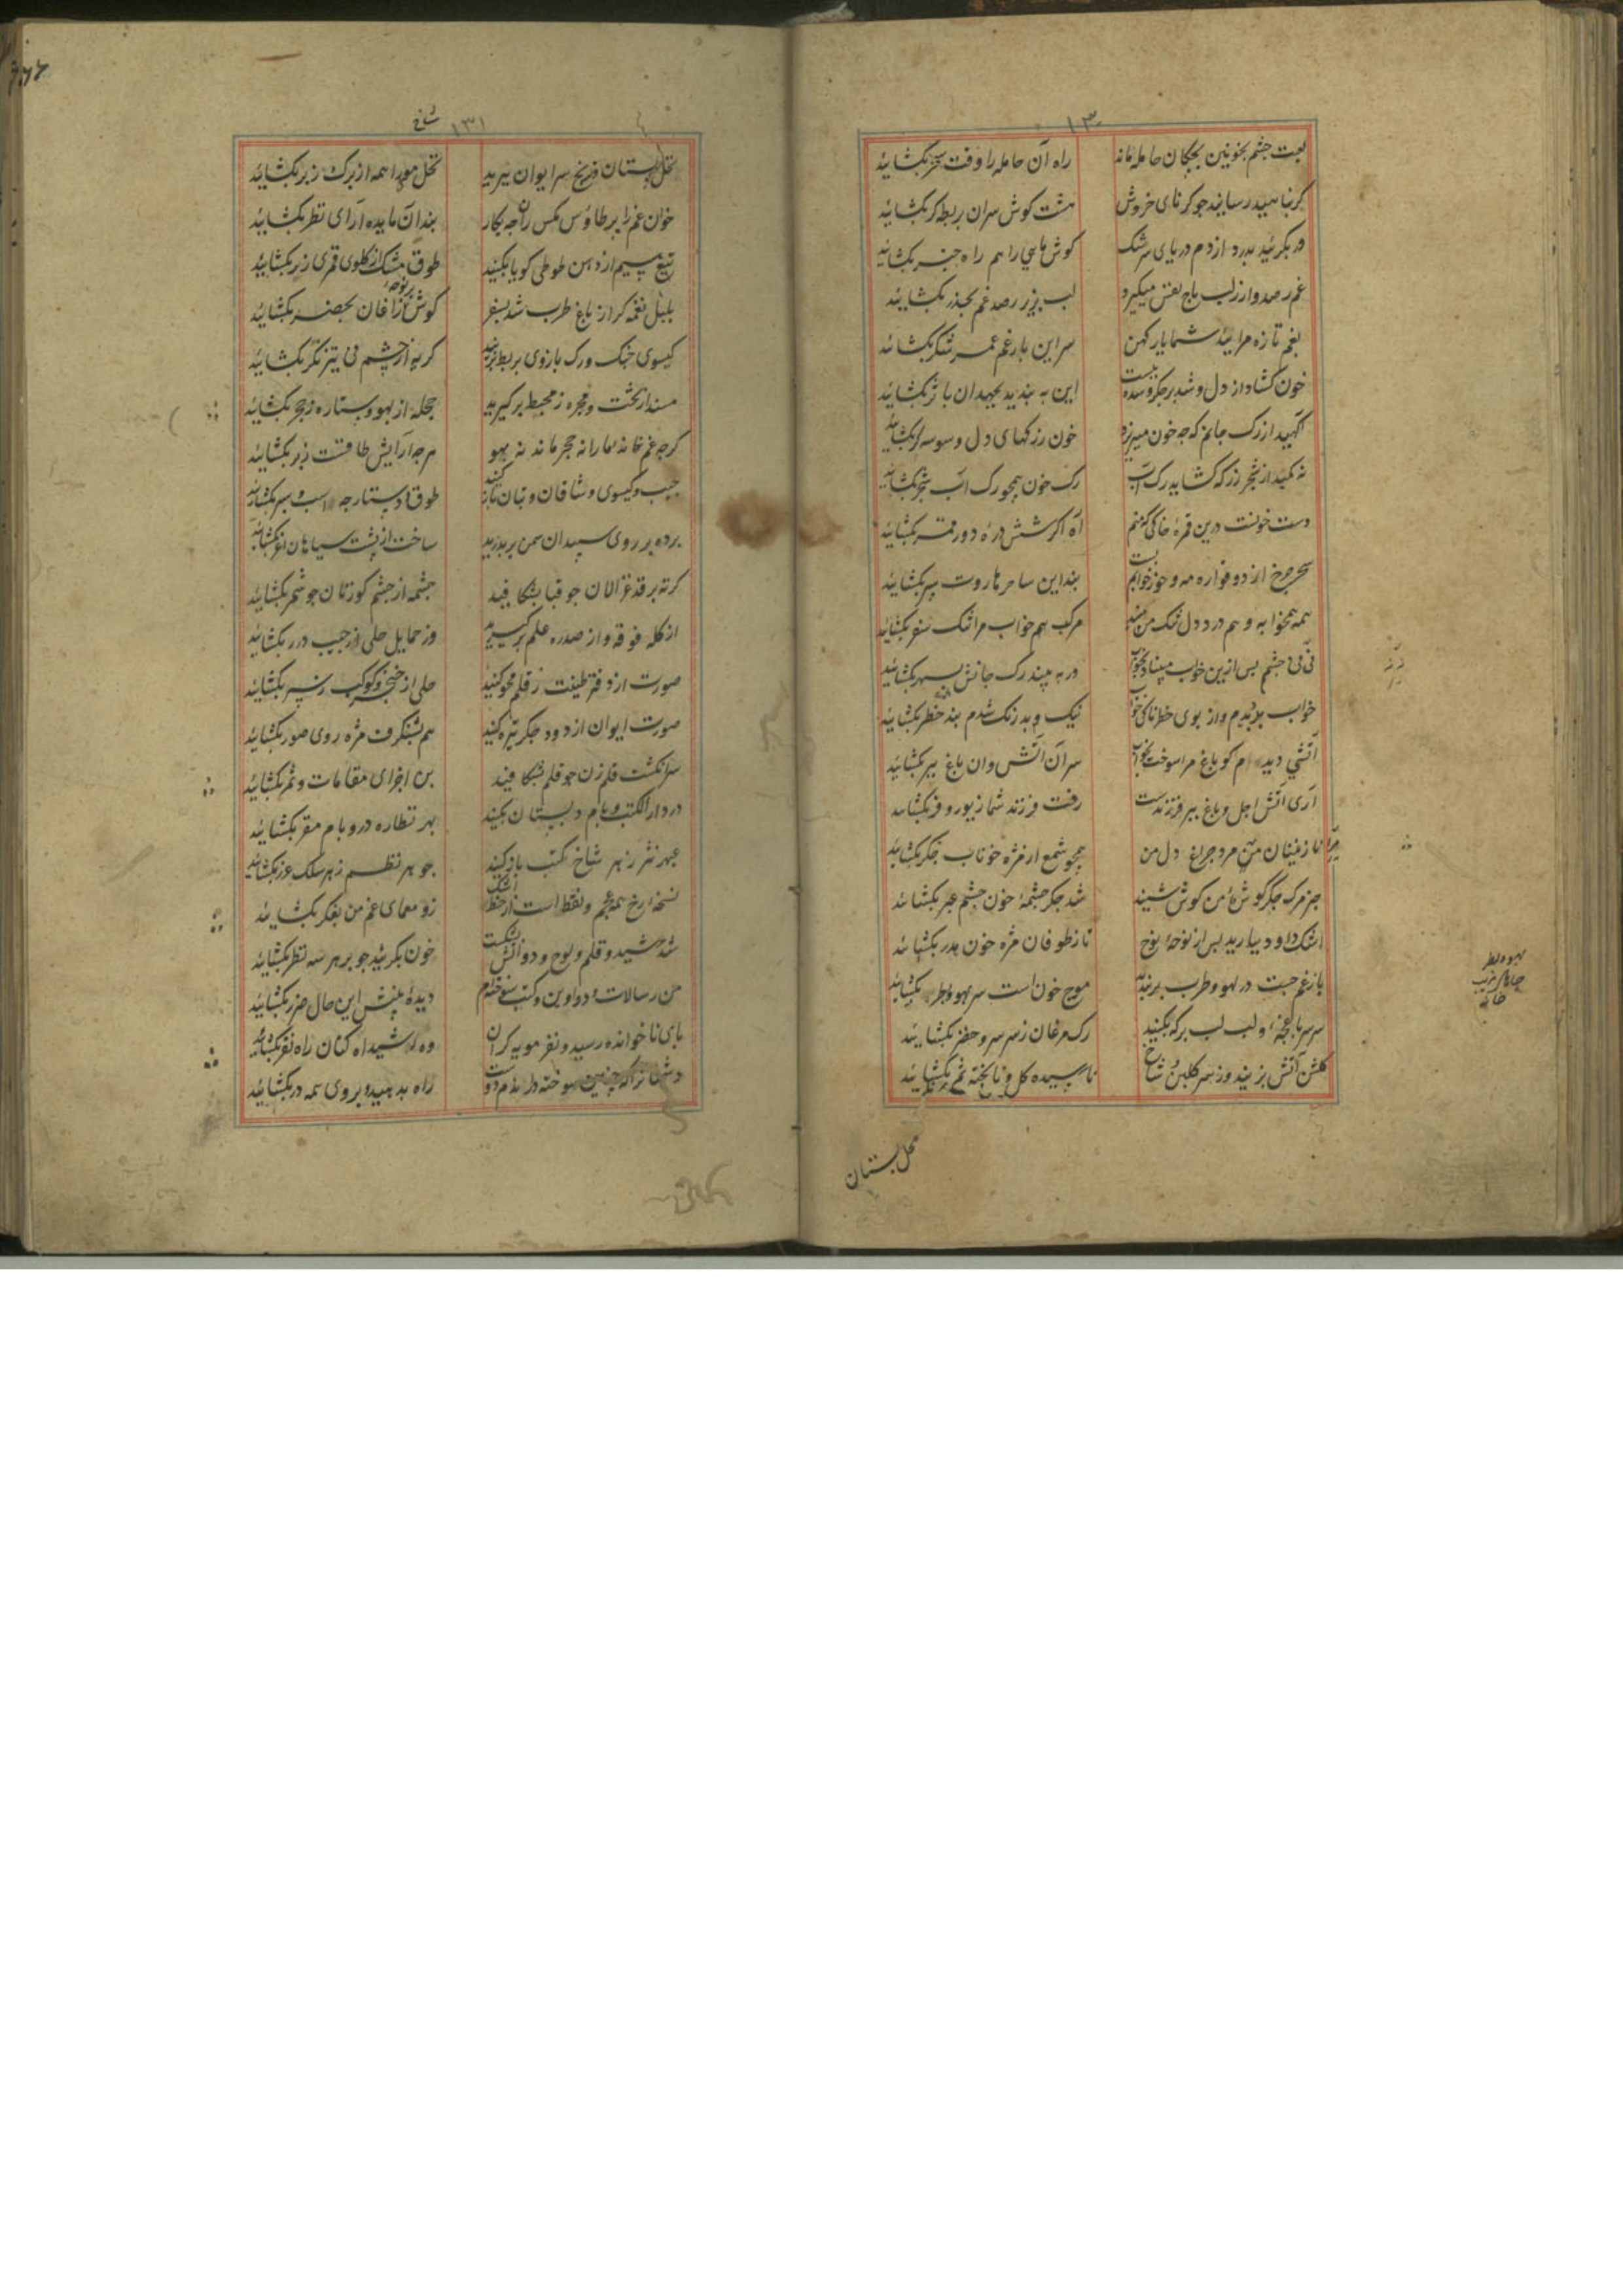 ۱۳
لعبت چشم بخونین بچکان حامله ماند
راه آن حامله را وقت سحر بکشائید
کر بناهید رسانید جو کرنای خروش
هشت کوش سران بربط کر بکشائید
ور بکرئید بدرد از دم دریای سرشک
کوش ماهی را هم راه خبر بکشائید
غم رصدوار ز لب باج نفس میکیرد
لب ز بیم رصد غم بحذر بکشائید
بغم تازه مرائید شما یار کهن
سر این بار غم عمر شکر بکشائید
خون کشاد از دل و شد بر جکرو سده ببست
این ببندید بجهد آن باثر بکشائید
اکهید از رک جانم که جه خون میریزد
خون ز رکهای دل وسوسه کر بکشائید
نه کمید از شجر رز که کشاید رک آب
رک خون همچو رک آب شجر بکشائید
دست خونست درین قمره خاکی که منم
آه اکر ششدره دور قمر بکشائید
سحر جرخ از دو قواره مه و خور خوابم بست
بند این ساحر هاروت سیر بکشائید
همه همخوابه و هم درد دل تنک من اید
مرکب هم خواب مرا تنک سفر بکشائید
نی نی چشم پس ازین خواب مبیناد بخواب
ور به بیند رک جانش بسهر بکشائید
خواب بد دیدم واز بوی خطرناکی خواب
نیک و بد رنک شدم بند خطر بکشائید
آتشی دیده ام کو باغ مرا سوخت بخواب
سر آن آتش وان باغ ببر بکشائید
آری آتش اجل و باغ ببر فرزندست
رفت فرزند شما زیور و فر بکشائید
نازنینان من مرد جراغ دل من
همچو شمع از مژه خوناب جکر بکشائید
جز مرک جکر کوشه من کوش شنید
شد جکر چشمه خون چشم عبر بکشائید
اشک داود ببارید پس از نوحه نوح
تا ز طوفان مژه خون هدر بکشائید
باز غم جست در لهو و طرب بر بندید
موج خون است سر بهو و بطر بکشائید
سر سر باغجه و لب لب برکه بکنید
رک مرغان ز سر سرو و خضر بکشائید
کلشن آتش بزنید وز سر کلبن و شاخ
نارسیده کل و ناپخته ثمر بکشائید
نخل بستان
۱۳۱
نخل بستان و ترنج سر ایوان ببرید
نخل مومدا همه از برک زبر بکشائید
خوان غم را پر طاوس مکس ران جه بکار
بند آن مایده آرای نظر بکشائید
تیغ سیم از دهن طوطی کویا بکنید
طوق مشک از کلوی قمری زر بکشائید
بلبل نغمه کر از باغ طرب شد بسفر
کوش بر نوحه زاغان بحضر بکشائید
کیسوی جنک و رک بازوی بربط ببرید
کریه از چشم نی تیز نکر بکشائید
مسند از تخت و مجره ز محیط برکیرید
حجله از بهو و ستاره ز حجر بکشائید
کرچه غم خانه ما را نه حجر ماند نه بهو
هر چه آرایش طاقست زبر بکشائید
جیب و کیسوی وشاقان و بتان باز کنید
طوق و دستارجه اسب و سپر بکشائید
پرده بر روی سپیدان سمن بر بدرید
ساخت از پشت سیاهان اغر بکشائید
کرته بر قد غزالان جو قبا بشکافید
چشمه از چشم کوزنان جو شمر بکشائید
از کله فوقه و از صدره علم برکیرید
وز حمایل حلی و از جیب درر بکشائید
صورت از دفتر طینت ز قلم محو کنید
حلی از خنجر و کوکب ز سپر بکشائید
صورت ایوان از دود جکر تیره کنید
هم بشنکرف مژه روی صور بکشائید
سر انکشت قلم زن جو قلم بشکافید
بن اجزای مقامات و ثمر بکشائید
در دار الکتب و بام دبستان بکنید
بهر نظاره در و بام مقر بکشائید
عبهر نثر ز هر شاخ کتب باز کنید
جوهر نظم ز هر سلک غرر بکشائید
نسخه رخ همه عجم و نقط است از خط اشک
زو معمای غم من بفکر بکشائید
شد شهید و قلم و لوح و دواتش بشکست
خون بکرئید جو بر هر سه نظر بکشائید
من رسالات و دواوین و کتب سوخته ام
دیده بینش این حال ضرر بکشائید
پای ناخوانده رسید و نفر مویه کران
وه که شیدا کنان راه نفر بکشائید
دشمنان را که چنین سوخته دارندم دوست
راه بدهید و بروی همه در بکشائید